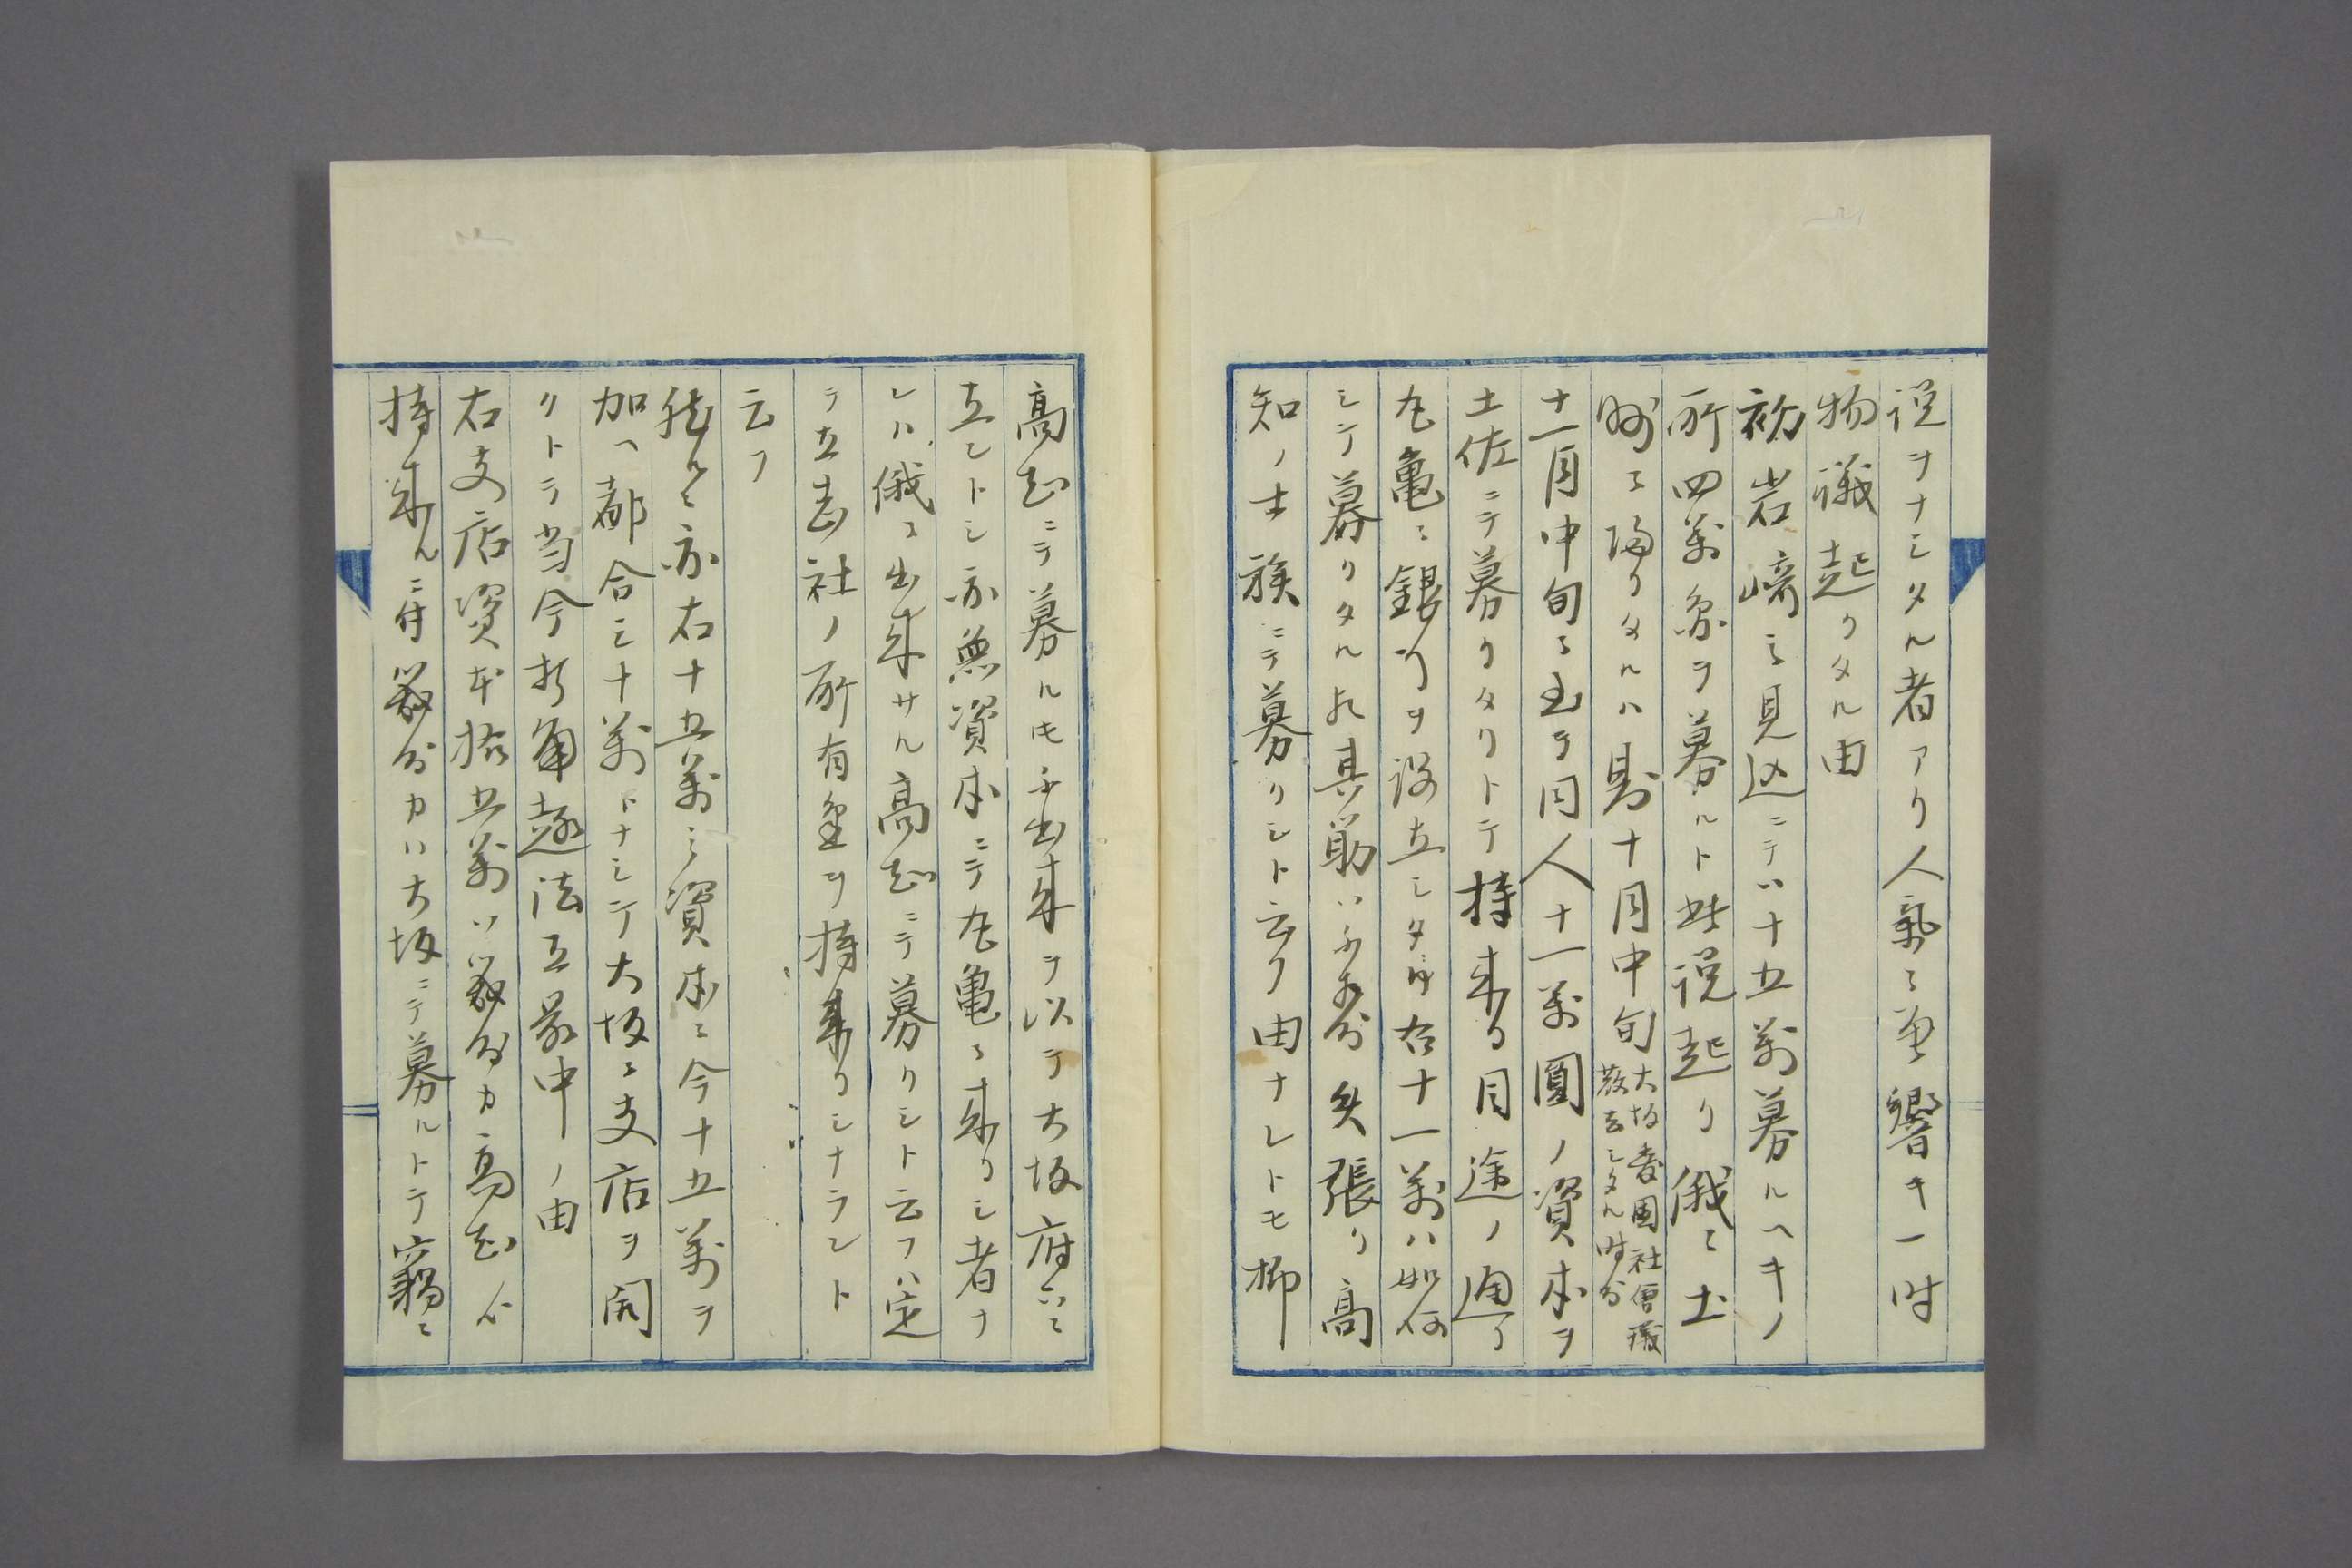 説ヲナシタル者アリ人氣ニ響キ一時
物議起リタル由
初岩﨑ミ見込ニテハ十五萬募ルヘキノ
所四萬余ヲ募ルト此説起リ俄ニ土
州ニ帰リタルハ則十月中旬大坂愛國社會議散会シタル時分
十一月中旬ニ至テ同人十一萬圓ノ資本ヲ
土佐ニテ募リタリトテ持来ル目途ノ通リ
丸亀ニ銀行ヲ設立シタリ右十一萬ハ如何
シテ募リタルや其節ハ不相分矢張リ高
知ノ士族ニテ募リシト云フ由ナレトモ抑
高知ニテ募ルモ不出来ヲ以テ大坂府ニ
立シトシ亦無資本ニテ丸亀ニ来リシ者ナ
レハ俄ニ出来サル高知ニテ募リシト云フハ定
テ立志社ノ所有金ヲ持来リシナラント
云フ
然ルニ亦右十五萬ミ資本ニ今十五萬ヲ
加ヘ都合三十萬トナシテ大坂ニ支店ヲ開
クトテ当今折角起法立募中ノ由
右支店資本拾五萬ハ幾分カ高知ゟ
持来ルニ付幾分カハ大坂ニテ募ルトテ窃ニ